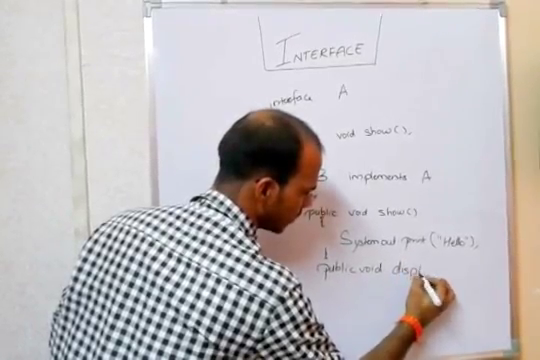 INTERFACE
interface A
void show();
B implements A
public void show()
System.out.print("Hello");
}
public void displ